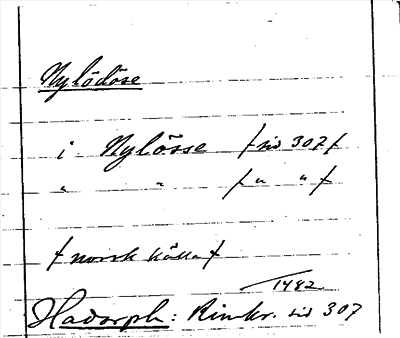 Nylödöse
i Nylösse /sid 307/
" " /" "/
/norsk källa/
1482
Hadorph: Rimkr. sid 307